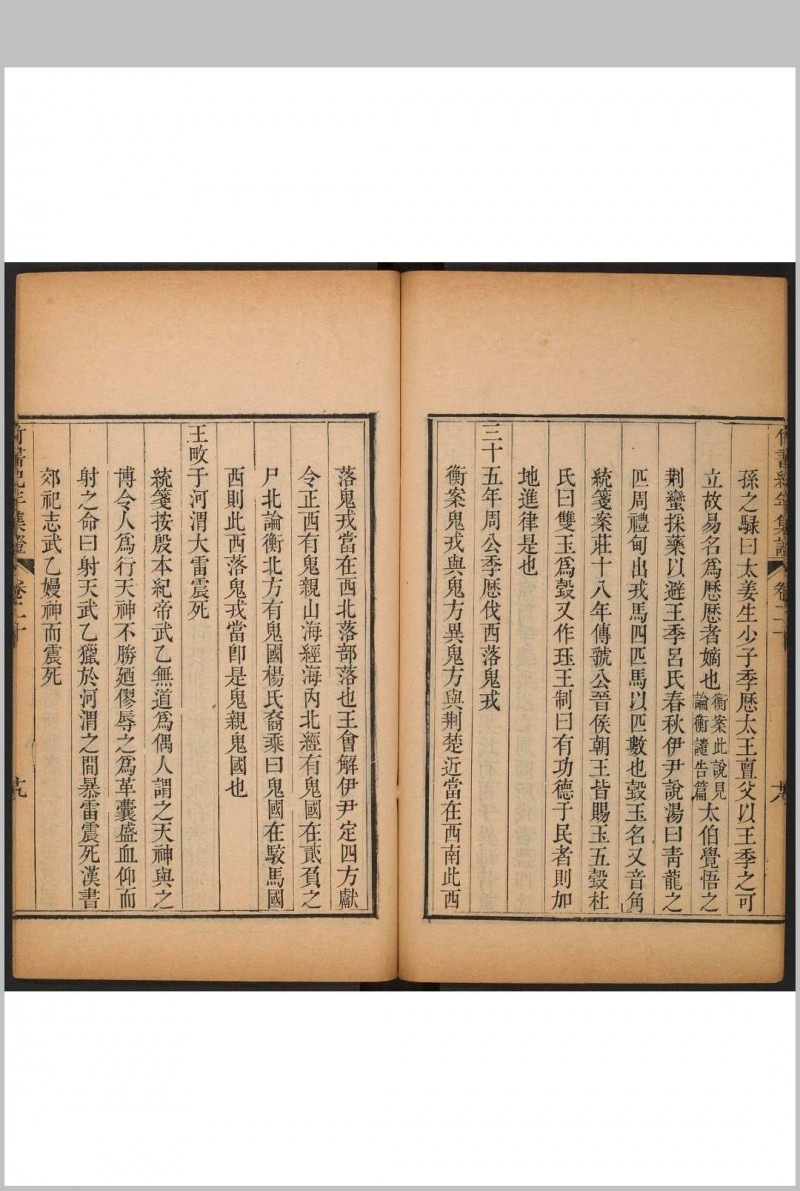 竹書紀年集證 卷二十
孫之騄曰太姜生少子季歷太王亶父以王季之可
立故易名爲歷歷者嫡也衡案此說見論衡譴告篇太伯覺悟之
荆蠻採藥以避王季呂氏春秋伊尹說湯曰靑龍之
匹周禮甸出戎馬四匹馬以匹數也瑴玉名又音角
統箋案莊十八年傳虢公晉侯朝王皆賜玉五瑴杜
氏曰雙玉爲瑴又作珏王制曰有功德于民者則加
地進律是也
三十五年周公季歷伐西落鬼戎
衡案鬼戎與鬼方異鬼方與荆楚近當在西南此西
落鬼戎當在西北落部落也王會解伊尹定四方獻
令正西有鬼親山海經海內北經有鬼國在貳負之
尸北論衡北方有鬼國楊氏裔乘曰鬼國在駮馬國
西則此西落鬼戎當卽是鬼親鬼國也
王畋于河渭大雷震死
統箋按殷本紀帝武乙無道爲偶人謂之天神與之
博令人爲行天神不勝廼僇辱之爲革囊盛血仰而
射之命曰射天武乙獵於河渭之間暴雷震死漢書
郊祀志武乙嫚神而震死
竹書紀年集證 卷二十 十九